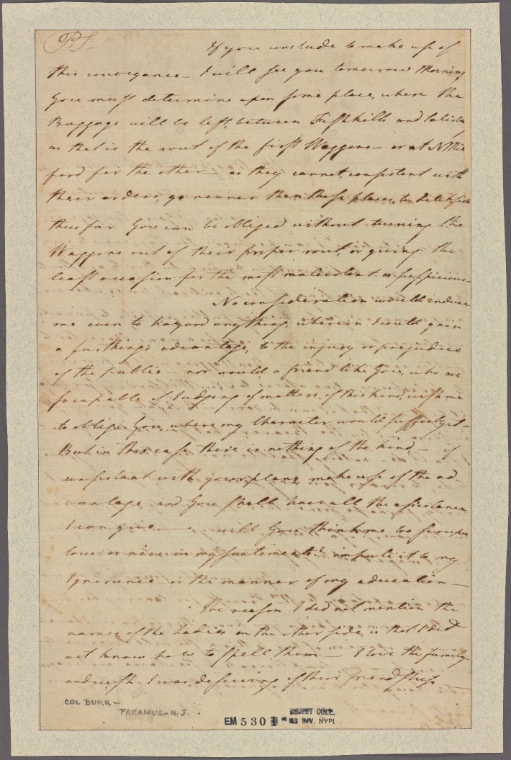 PS
If you conclude to make use of
this conveyance – I will see you tomorrow Morning
You must determine upon some place, where the
Baggage will be left, between Fishkills and
as that is the rout of the first Waggons – or at
for the other – as they cannot, consistent with
their orders, go nearer than these places, to
thus far You can be obliged without turning the
Waggons out of their proper rout, or giving the
least occasion for the most malevolent
No consideration would induce
me even to hazard any thing, wherein I would gain
a farthings advantage, to the injury or prejudice
of the public – nor would a friend like You, who are
so capable of Judging of matters of this kind, wish me
to oblige You, where my Character would suffer by it –
But in this case there is nothing of the kind – if
consistant with your plans, make use of the ad
vantage, and You shall have all the assistance
I can give – will You think me too scrupu
lous or nice in my sentiments impute it to my
Ignorance or the manner of my education –
The reason I did not mention the
names of the Ladies on the other side, is that I did
not know how to spell them – I love the family
and wish I was deserving of their friendship –
COL BURR –
PARAMUS – N.J.
EM 530
EMMET COLL.
MS INV. NYPL